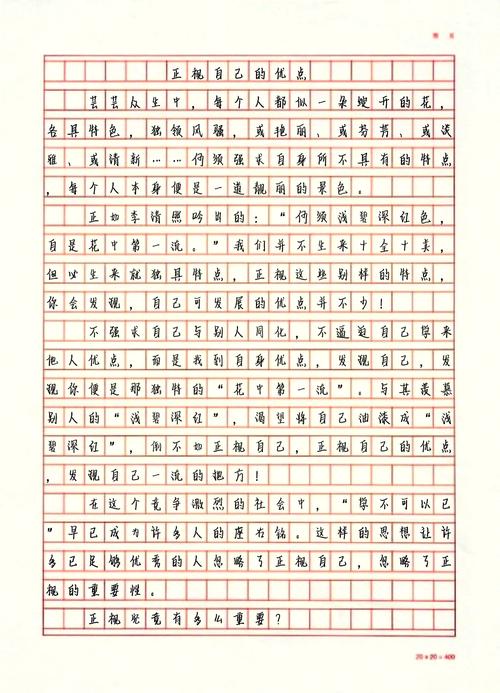 正视自己的优点
芸芸众生中，每个人都似一朵绽开的花，
各具特色，独领风骚，或艳丽、或芬芳、或淡
雅、或清新……何须强求自身所不具有的特点
，每个人本身便是一道靓丽的景色。
正如李清照吟咏的：“何须浅碧深红色，
自是花中第一流。”我们并不生来十全十美，
但以生来就独具特点，正视这些别样的特点，
你会发现，自己可发展的优点并不少！
不强求自己与别人同化，不逼迫自己学来
他人优点，而是找到自身优点，发现自己，发
现你便是那独特的“花中第一流”。与其羡慕
别人的“浅碧深红”，渴望将自己油漆成“浅
碧深红”，倒不如正视自己，正视自己的优点
，发现自己一流的地方！
在这个竞争激烈的社会中，“学不可以已
”早已成为许多人的座右铭。这样的思想让许
多已足够优秀的人忽略了正视自己，忽略了正
视的重要性。
正视究竟有多么重要？
20×20=400